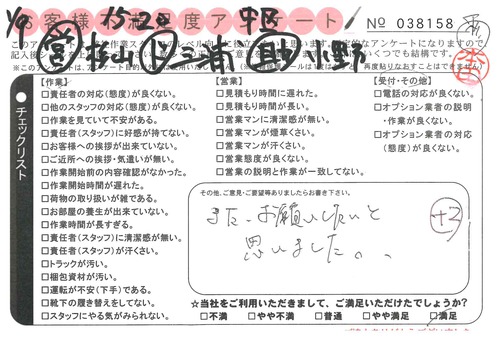 お客様満足度アンケート
1/9 15:20 中区
No 038158
営 杉山 三浦 小野
チェックリスト
【作業】
□責任者の対応(態度)が良くない。
□他のスタッフの対応(態度)が良くない。
□作業を見ていて不安がある。
□責任者(スタッフ)に好感が持てない。
□お客様への挨拶が出来ていない。
□ご近所への挨拶・気遣いが無い。
□作業開始前の内容確認がなかった。
□作業開始時間が遅れた。
□荷物の取り扱いが雑である。
□お部屋の養生が出来ていない。
□作業時間が長すぎる。
□責任者(スタッフ)に清潔感が無い。
□責任者(スタッフ)が汗くさい。
□トラックが汚い。
□梱包資材が汚い。
□運転が不安(下手)である。
□靴下の履き替えをしてない。
□スタッフにやる気がみられない。
【営業】
□見積もり時間に遅れた。
□見積もり時間が長い。
□営業マンに清潔感が無い。
□営業マンが煙草くさい。
□営業マンが汗くさい。
□営業態度が良くない。
□営業の説明と作業が一致してない。
【受付・その他】
□電話の対応が良くない。
□オプション業者の説明
・作業が良くない。
□オプション業者の対応
(態度)が良くない。
その他、ご意見・ご要望等ありましたらお書き下さい。
また、お願いしたいと
思いました。
+2
☆当社をご利用いただきまして、ご満足いただけたでしょうか?
□不満 □やや不満 □普通 □やや満足 □満足